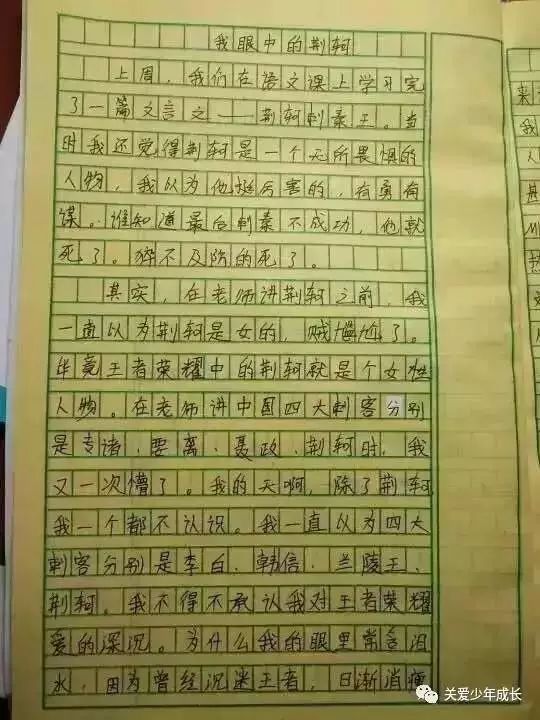 我眼中的荆轲
上周，我们在语文课上学习完
了一篇文言文——荆轲刺秦王。当
时我还觉得荆轲是一个无所畏惧的
人物，我以为他挺厉害的，有勇有
谋。谁知道最后刺秦不成功，他就
死了。猝不及防的死了。
其实，在老师讲荆轲之前，我
一直以为荆轲是女的，贼尴尬了。
毕竟王者荣耀中的荆轲就是个女性
人物。在老师讲中国四大刺客分别
是专诸、要离、聂政、荆轲时，我
又一次懵了。我的天啊，除了荆轲
我一个都不认识。我一直以为四大
刺客分别是李白、韩信、兰陵王、
荆轲。我不得不承认我对王者荣耀
爱的深沉。为什么我的眼里常含泪
水，因为曾经沉迷王者，日渐消瘦
来
我
人
甚
关爱少年成长